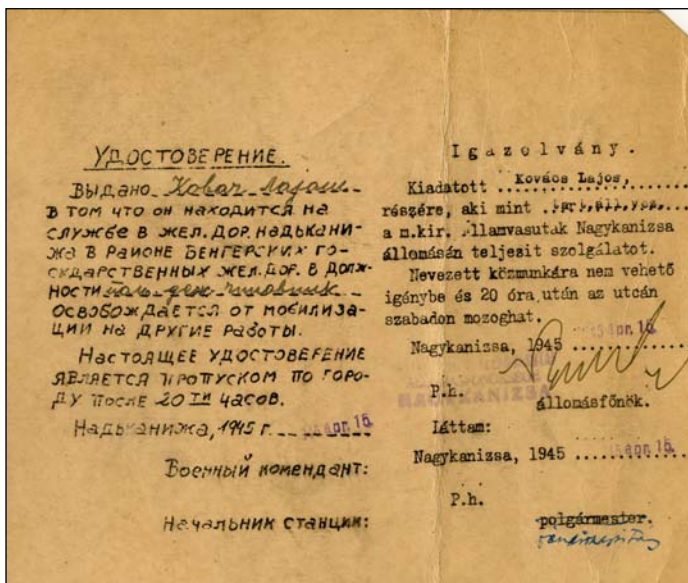 УДОСТОВЕРЕНИЕ.
Выдано Ковач Лайош
в том что он находится на
службе в жел. дор. Надькани-
жа в раионе Венгерских го-
сударственных жел. дор. в долж-
ности
освобождается от мобилиза-
ции на другие работы.
Настоящее удостоверение
является пропуском по горо-
ду после 20 ти часов.
Надьканижа, 1945 г. apr. 15
Военный комендант:
Начальник станции:
Igazolvány.
Kiadatott ...Kovács Lajos,...
részére, aki mint
a m.kir. államvasutak Nagykanizsa
állomásán teljesit szolgálatot.
Nevezett közmunkára nem vehető
igénybe és 20 óra után az utcán
szabadon mozoghat.
Nagykanizsa, 1945 apr. 15.
NAGYKANIZSA
P.h.
állomásfőnök.
Láttam:
Nagykanizsa, 1945 apr. 15.
P.h.
polgármester.